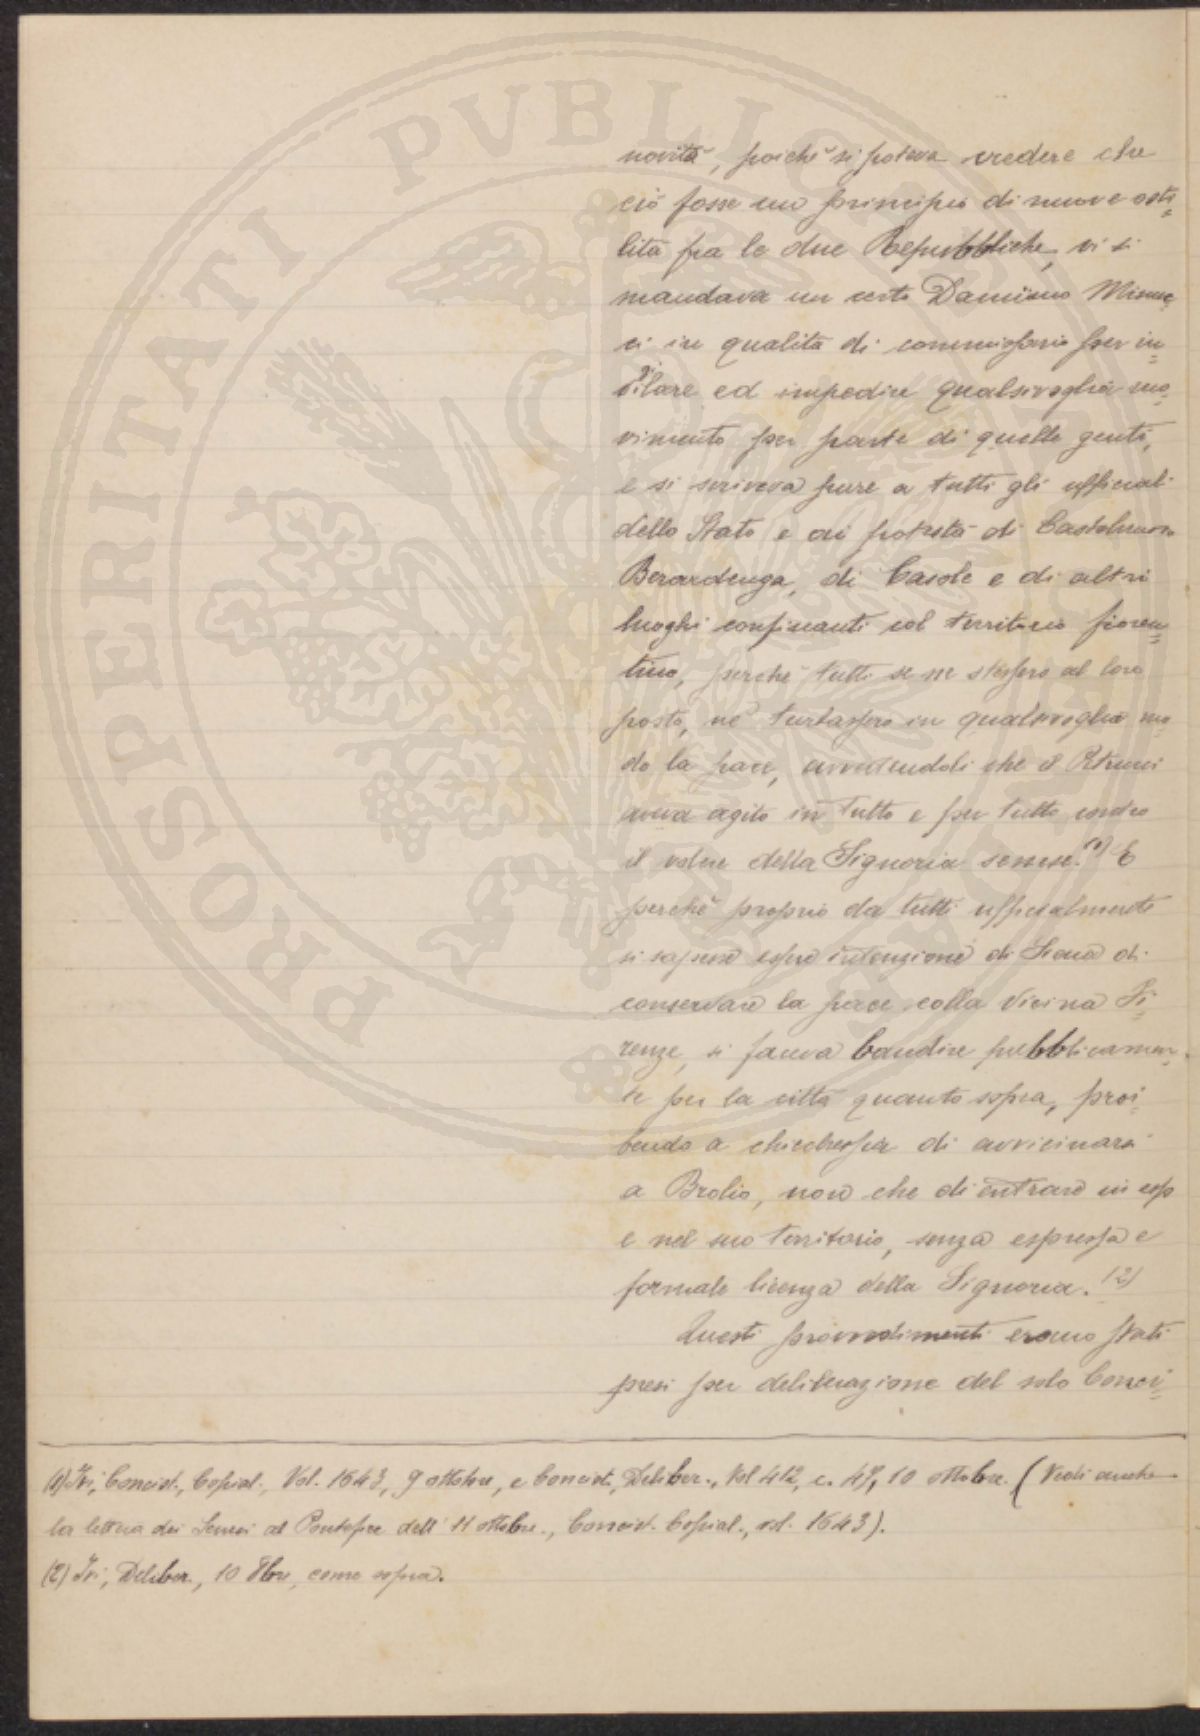 novità, poichè si poteva credere che
ciò fosse un principio di nuove osti=
lità fra le due Repubbliche, vi si
mandava un certo Damiano Minuc=
ci in qualità di commissario per in=
vigilare ed impedire qualsivoglia mo=
vimento per parte di quelle genti,
e si scriveva pure a tutti gli ufficiali
dello Stato e ai potestà di Castelnuovo
Berardenga, di Casole e di altri
luoghi confinanti col territorio fioren=
tino, perchè tutti se ne stessero al loro
posto, nè turbassero in qualsivoglia mo=
do la pace, avvertendoli che il Petrucci
aveva agito in tutto e per tutto contro
il volere della Signoria senese.(1) E
perchè proprio da tutti ufficialmente
si sapesse essere intenzione di Siena di
conservare la pace colla vicina Fi=
renze, si faceva bandire pubblicamen=
te per la città quanto sopra, proi=
bendo a chicchessia di avvicinarsi
a Brolio, non che di entrare in esso
e nel suo territorio, senza espressa e
formale licenza della Signoria. (2)
Questi provvedimenti erano stati
presi per deliberazione del solo Conci=
(1) Ivi, Concist., Copial., Vol. 1643, 9 ottobre, e Concist., Deliber., Vol 412, c. 47, 10 ottobre. (Vedi anche
la lettera dei Senesi al Pontefice dell' 11 ottobre., Concist. Copial., vol. 1643).
(2) Ivi, Deliber., 10 8bre, come sopra.
PROSPERITATI PVBLICAE